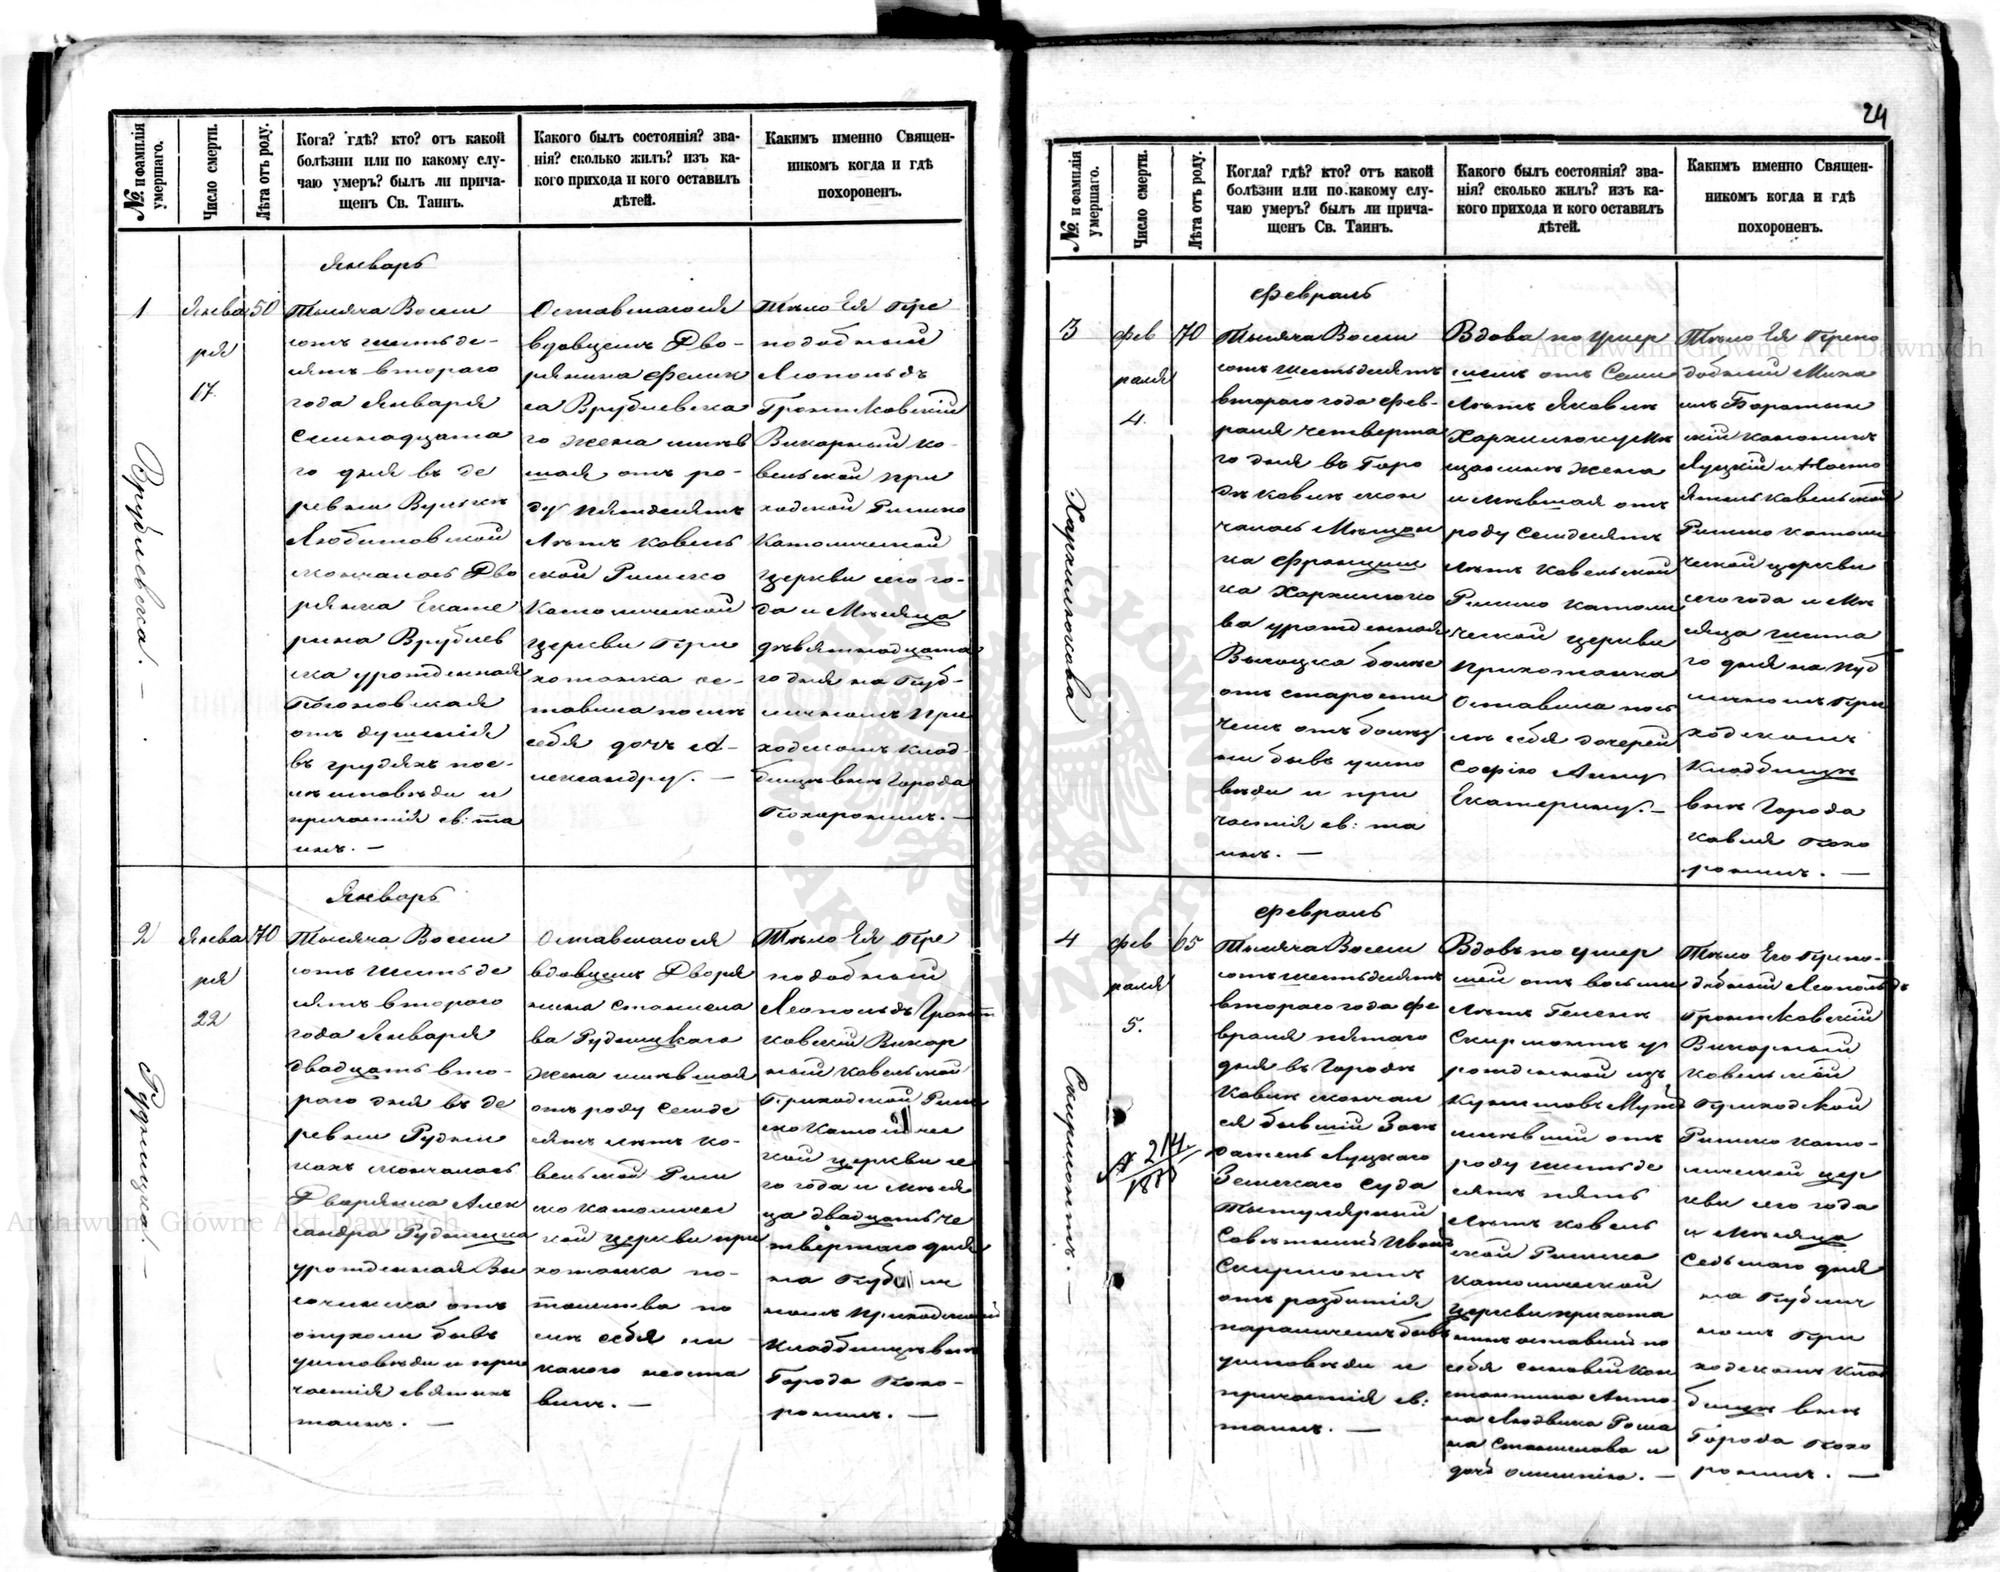 № и фамилія умершаго.
Число смерти.
Лѣта отъ роду.
Кога? гдѣ? кто? отъ какой
болѣзни или по какому слу-
чаю умеръ? былъ ли прича-
щенъ Св. Таинъ.
Какого былъ состоянія? зва-
нія? сколько жилъ? изъ ка-
кого прихода и кого оставилъ
дѣтей.
Каким именно Священ-
никомъ когда и гдѣ
похороненъ.
1
Врублевска. —
Янва
ря
17.
50
Январь
Тысяча Восем
сотъ шестьде-
сятъ втораго
года Января
Семнадцата
го дня въ де
ревни Вулькѣ
Любитовской
скончалась Дво
рянка Екате
рина Врублев
ска урожденная
отъ душенія
въ грудяхъ пос-
лѣ исповѣди и
причастія св: та
инъ. —
Оставшагося
вдовцемъ Дво-
рянина Фелик
са Врублевска
го жена имѣв
шая отъ ро-
ду пятдесятъ
лѣтъ Ковель
ской Римско
Католической
церкви При
хожанка ос-
тавила послѣ
себя дочь Ал-
лександру. —
Тѣло Ея Пре
подобный
Леопольдъ
Гронтковскій
Викарный Ко-
вельской При
ходской Римско
Католической
церкви сего го-
да и Мѣсяца
дѣвятнадцата
го дня на Пуб-
личномъ При
ходскомъ клад-
бищѣ внѣ Города
Похоронилъ. —
2
Рудницка. —
Янва
ря
22
70
Январь
Тысяча Восем
сотъ шестьде
сятъ втораго
года Января
двадцать вто-
раго дня въ де
ревни Рудни
кахъ скончалась
Дворянка Алек
сандра Рудницка
урожденная Вы
сочинска отъ
опухоли бывъ
исповѣди и при
частія святыхъ
таинъ. —
Оставшагося
вдовцемъ Дворя
нина Станисла
ва Рудницкаго
жена имѣвшая
отъ роду семде
сятъ лѣтъ Ко-
вельской Рим
ско католичес
кой церкви при
хожанка по-
томства по
слѣ себя ни
какого неоста
вила. —
Тѣло Ея Пре
подобный
Леопольдъ Гронт
ковскій Викар
ный Ковельской
Приходской Рим
ско Католичес
кой церкви се
го года и Мѣся
ца двадцать че
твертаго дня
на Публич
номъ Приходской
Кладбищѣ внѣ
Города Похо-
ронилъ. —
24
№ и фамилія умершаго.
Число смерти.
Лѣта отъ роду.
Когда? гдѣ? кто? отъ какой
болѣзни или по какому слу-
чаю умеръ? былъ ли прича-
щенъ Св. Таинъ.
Какого былъ состоянія? зва-
нія? сколько жилъ? изъ ка-
кого прихода и кого оставилъ
дѣтей.
Каким именно Священ-
никомъ когда и гдѣ
похороненъ.
3
Хархилюкова
Фев
раля
4.
70
Февраль
Тысяча Восем
сотъ шестьдесятъ
втораго года Фев-
раля четверта
го дня въ Горо
дѣ Ковлѣ скон
чалась Мѣщан
ка Францишка
Хархилюко
ва урожденная
Высоцка болѣе
отъ старости
чемъ отъ болѣз
ни бывъ испо
вѣди и при
частія св: та
инъ. —
Вдова по умер
шемъ отъ Семи
лѣтъ Яковѣ
Хархилюку Мѣ
щанинѣ жена
имѣвшая отъ
роду Семдесятъ
лѣтъ Ковельской
Римско Католи
ческой церкви
Прихожанка
Оставила пос
лѣ себя дочерей
Софію Анну
Екатерину. —
Тѣло Ея Препо
добный Миха
илъ Баратын
скій каноникъ
Луцкій и Насто
ятель Ковельской
Римско католи
ческой церкви
сего года и Мѣ
сяца шеста
го дня на Пуб
личномъ При
ходскомъ
Кладбищѣ
внѣ Города
Ковля Похо
ронилъ. —
4
Скирмонтъ. —
Фев
раля
5.
65
Февраль
Тысяча Восем
сотъ шестьдесятъ
втораго года Фе
враля пятаго
дня въ Городѣ
Ковлѣ скончал
ся бывшій Засѣ
датель Луцкаго
Земскаго Суда
Титулярный
Совѣтникъ Иванъ
Скирмонтъ
отъ разбитія
параличемъ бывъ
исповѣди и
причастія св:
таинъ. —
Вдовъ по умер
шей отъ восьми
лѣтъ Геленѣ
Скирмонтъ у
рожденной изъ
имѣвшій отъ
роду шестьде
сятъ пять
лѣтъ Ковель
ской Римско
католической
церкви прихожа
нинъ оставилъ по
себя сыновей Кон
стантина Анто
на Людвика Рома
на Станислава и
дочь
Тѣло Его Препо-
добный Леопольдъ
Гронтковскій
Викарный
Ковельской
Приходской
Римско Като-
лической цер
кви сего года
и Мѣсяца
Седьмаго дня
на Публич
номъ При
ходскомъ Клад
бищѣ внѣ
Города Похо
ронилъ. —
Archiwum Główne Akt Dawnych
Archiwum Główne Akt Dawnych
ARCHIWUM GŁÓWNE
AKT DAWNYCH